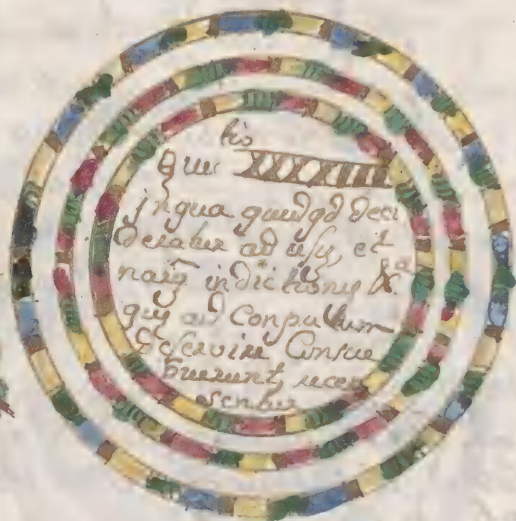 tio
Que XXXXIIII
jn qua quidqd deci
derabur ad usu, et
naiẽ indictionis &a
quę ad Conputum
Deseruire Consue
buerunt, recen
senbur